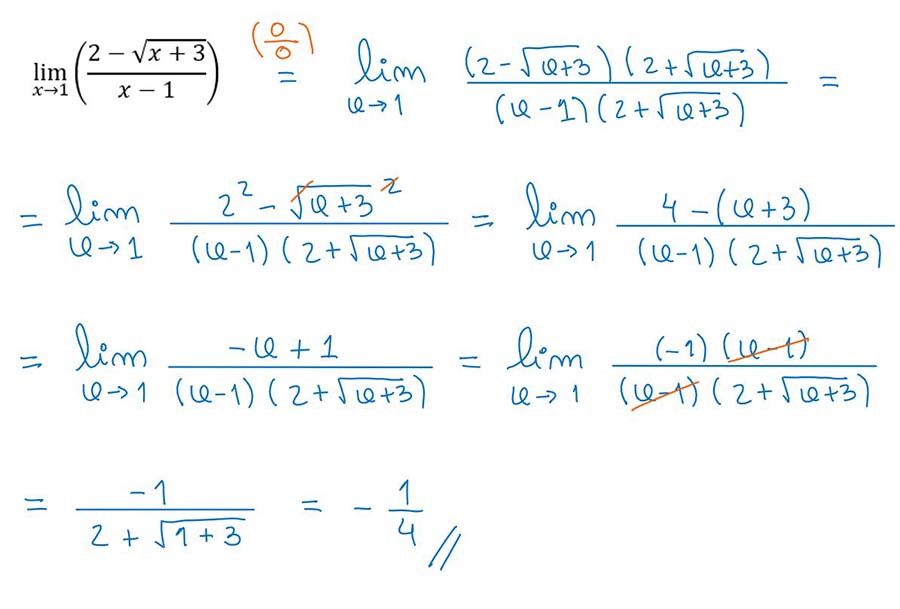 lim x→1 ( (2 − √(x + 3)) / (x − 1) ) (0/0) = lim x→1 ((2-√(x+3)) (2+√(x+3))) / ((x-1) (2+√(x+3))) =
= lim x→1 (2² - √(x+3)²) / ((x-1) (2+√(x+3))) = lim x→1 (4-(x+3)) / ((x-1) (2+√(x+3)))
= lim x→1 (-x+1) / ((x-1) (2+√(x+3))) = lim x→1 ((-1) (x-1)) / ((x-1) (2+√(x+3)))
= -1 / (2+√(1+3)) = - 1/4 //